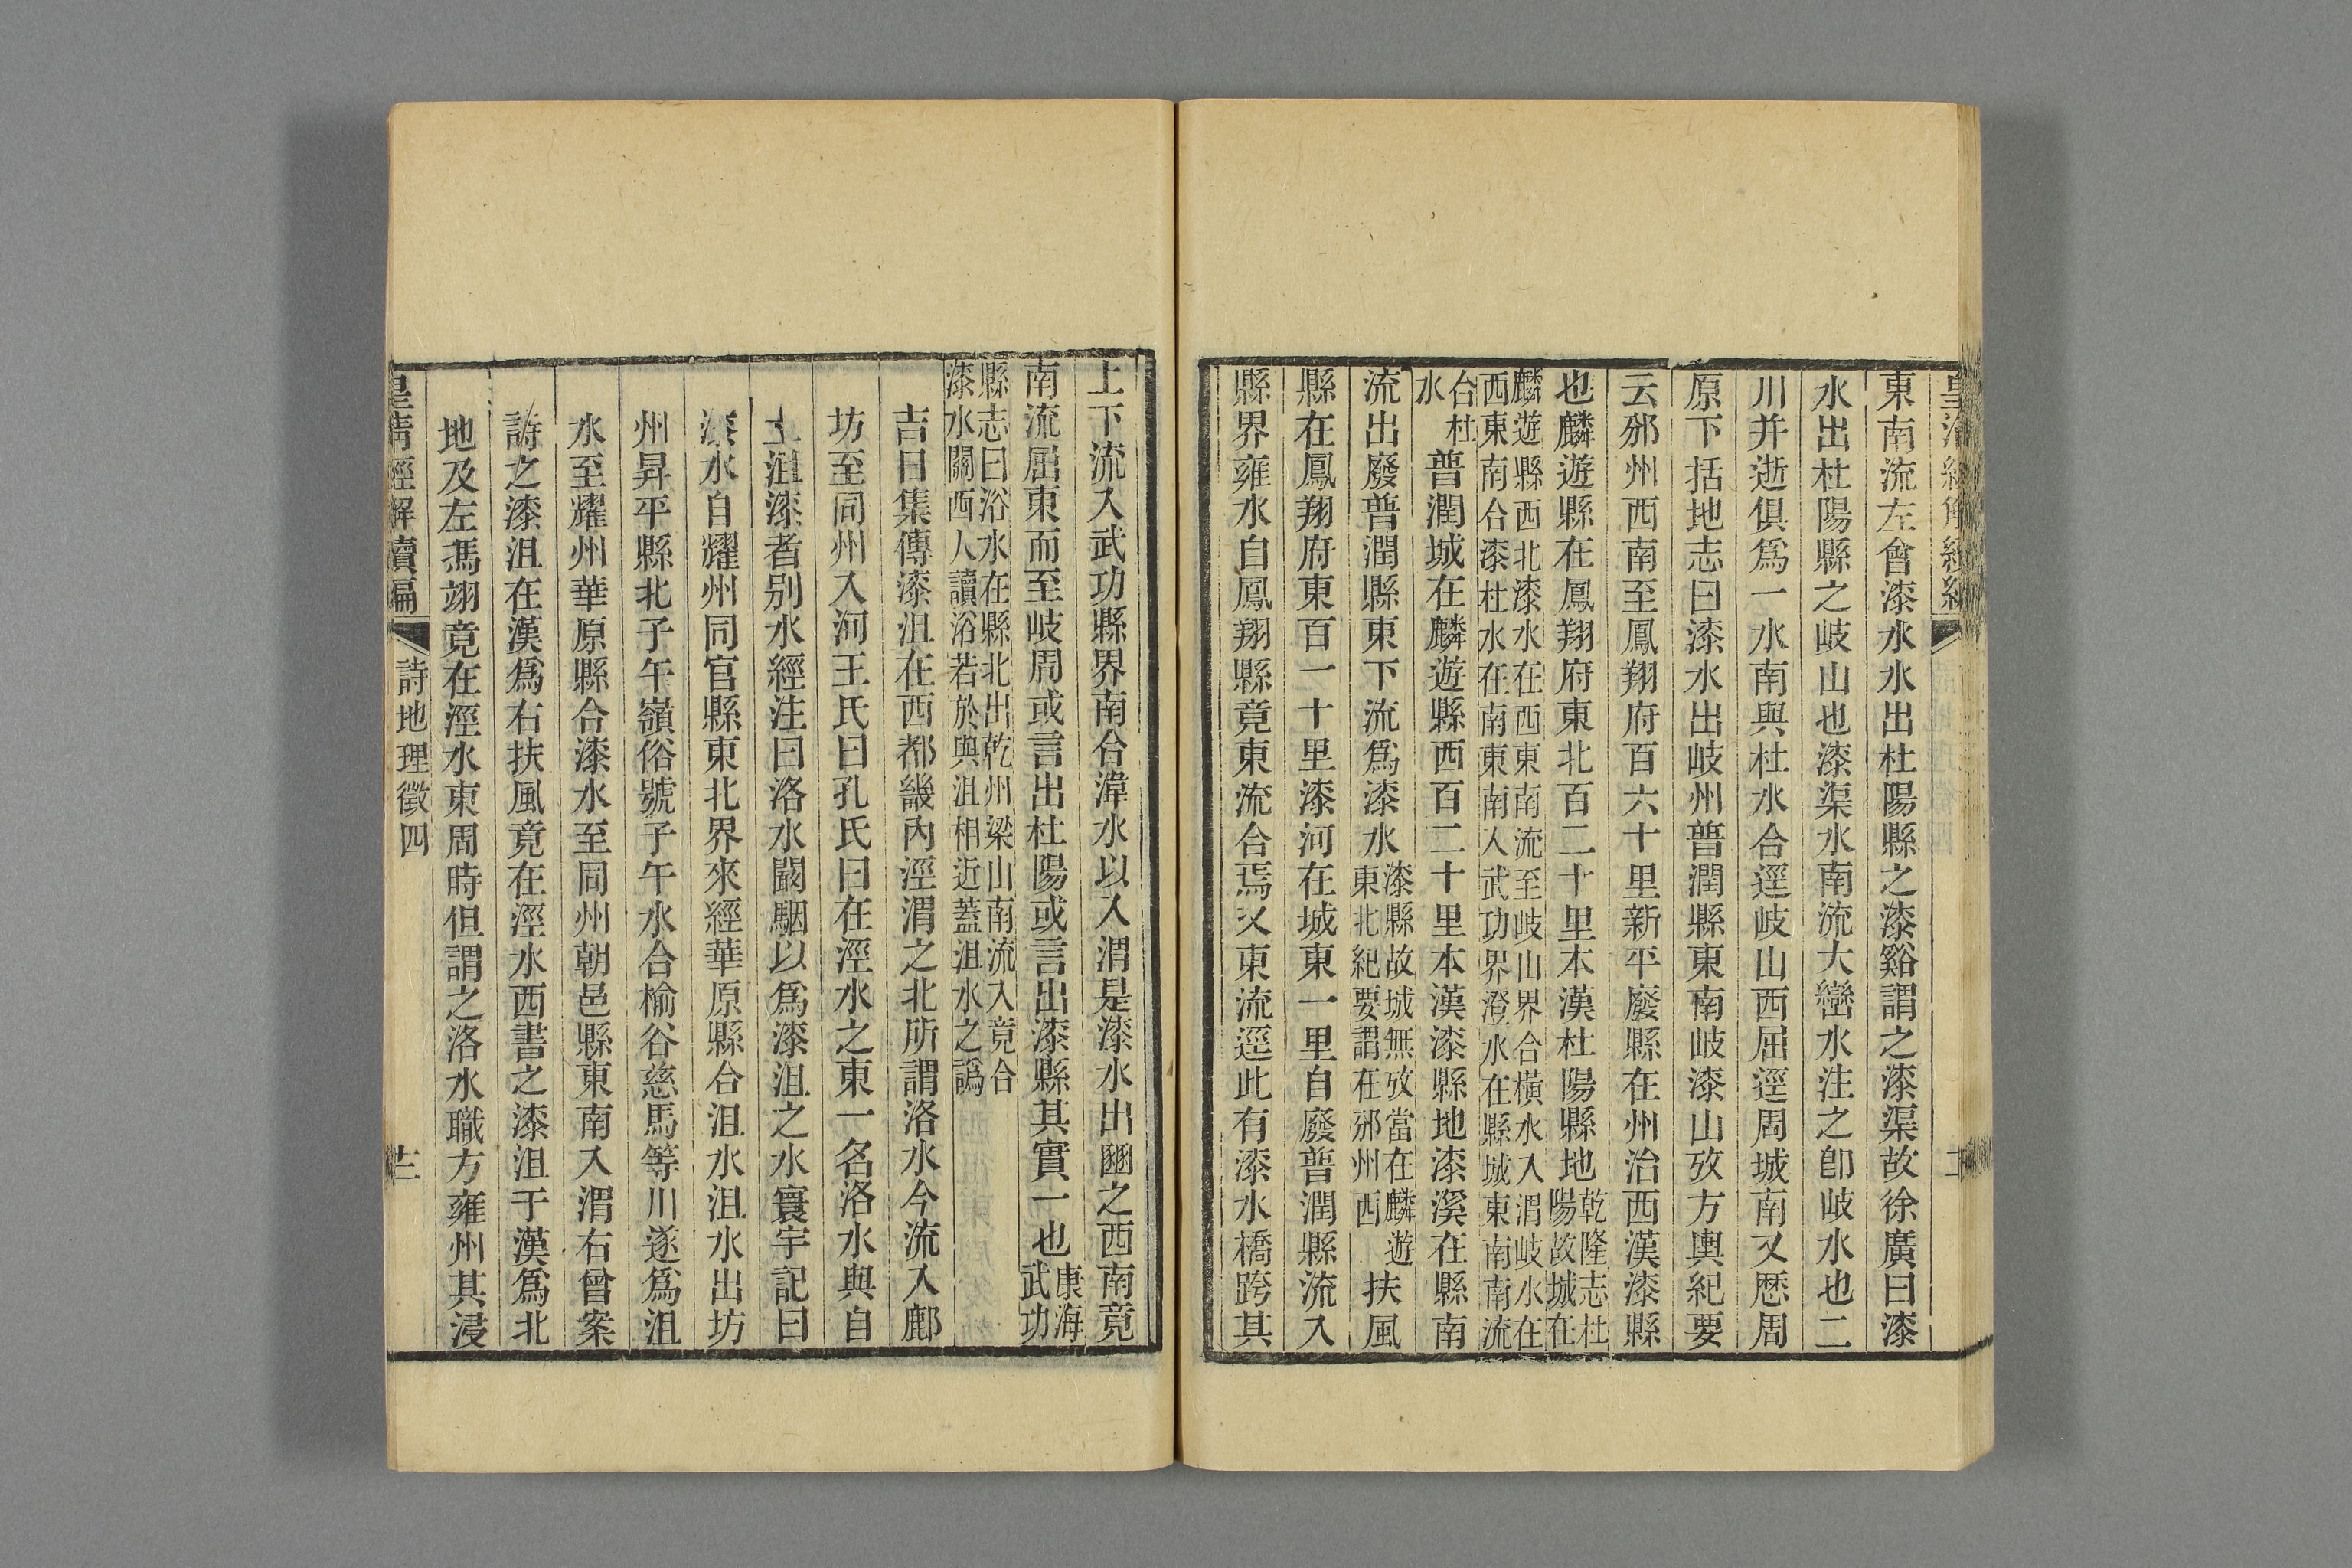 東南流左會漆水水出杜陽縣之漆谿謂之漆渠故徐廣曰漆
水出杜陽縣之岐山也漆渠水南流大巒水注之卽岐水也二
川并逝俱爲一水南與杜水合逕岐山西屈逕周城南又歷周
原下括地志曰漆水出岐州普潤縣東南岐漆山攷方輿紀要
云邠州西南至鳳翔府百六十里新平廢縣在州治西漢漆縣
也麟遊縣在鳳翔府東北百二十里本漢杜陽縣地乾隆志杜
陽故城在
麟遊縣西北漆水在西東南流至岐山界合橫水入渭岐水在
西東南合漆杜水在南東南入武功界澄水在縣城東南南流
合杜
水普潤城在麟遊縣西百二十里本漢漆縣地漆溪在縣南
流出廢普潤縣東下流爲漆水漆縣故城無攷當在麟遊
東北紀要謂在邠州西扶風
縣在鳳翔府東百一十里漆河在城東一里自廢普潤縣流入
縣界雍水自鳳翔縣竟東流合焉又東流逕此有漆水橋跨其
上下流入武功縣界南合湋水以入渭是漆水出豳之西南竟
南流屈東而至岐周或言出杜陽或言出漆縣其實一也康海
武功
縣志曰浴水在縣北出乾州梁山南流入竟合
漆水關西人讀浴若於與沮相近蓋沮水之譌
吉日集傳漆沮在西都畿內涇渭之北所謂洛水今流入鄜
坊至同州入河王氏曰孔氏曰在涇水之東一名洛水與自
土沮漆者別水經注曰洛水闞駰以爲漆沮之水寰宇記曰
漆水自耀州同官縣東北界來經華原縣合沮水沮水出坊
州昇平縣北子午嶺俗號子午水合榆谷慈馬等川遂爲沮
水至耀州華原縣合漆水至同州朝邑縣東南入渭右曾案
詩之漆沮在漢爲右扶風竟在涇水西書之漆沮于漢爲北
地及左馮翊竟在涇水東周時但謂之洛水職方雍州其浸
皇清經解續編
詩地理徵四